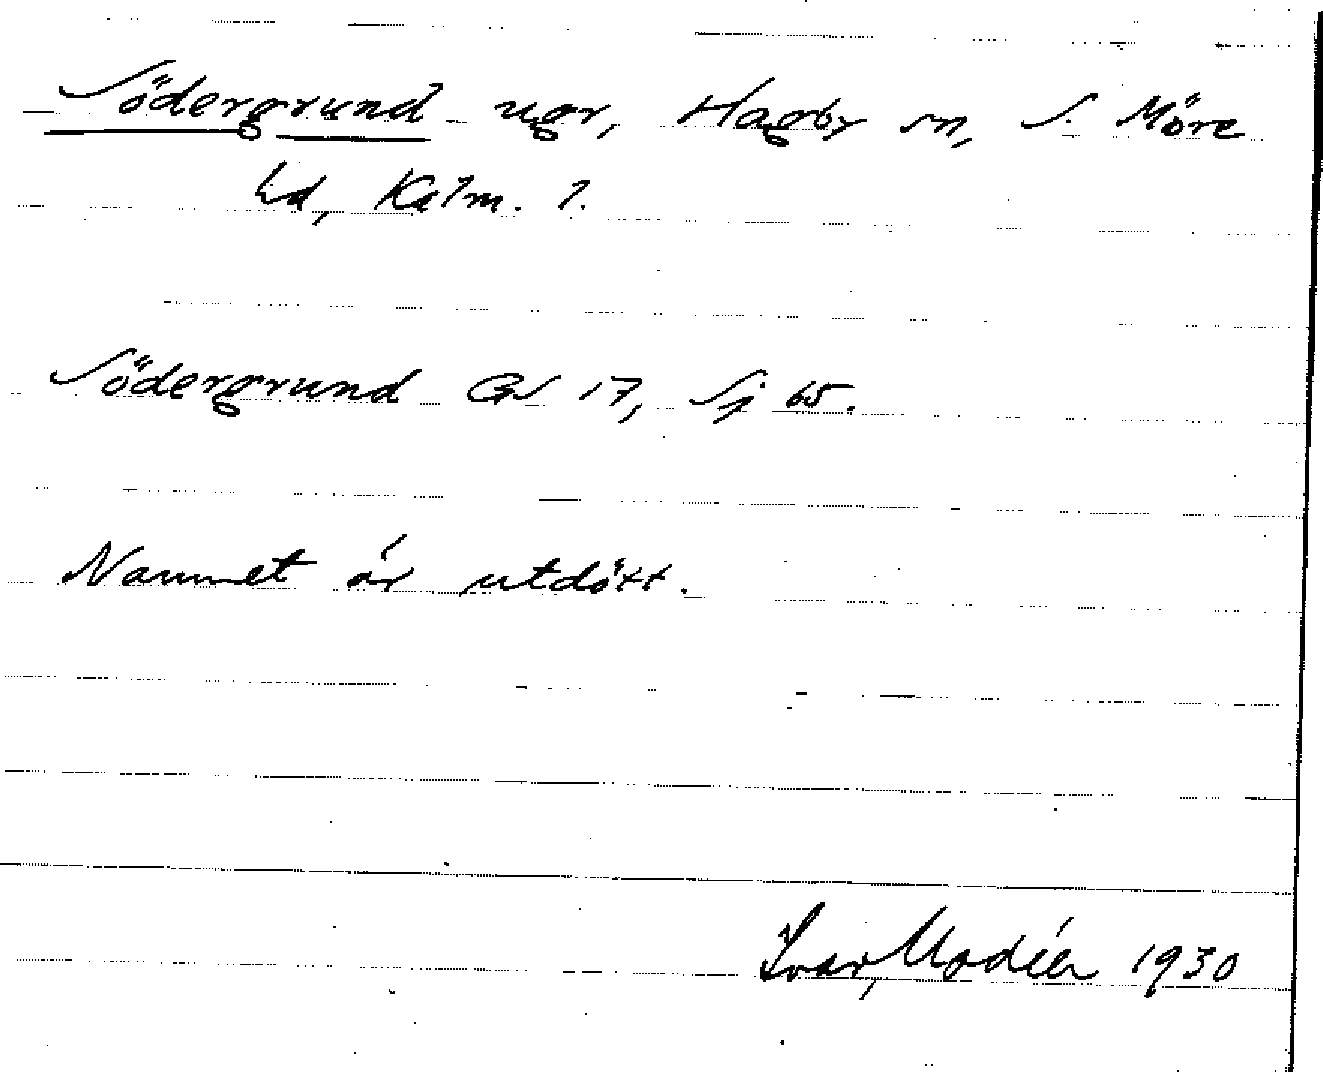 Södergrund ugr, Hagby sn, S. Möre
hd, Kalm. l.
Södergrund GV 17, Sj 65.
Namnet är utdött.
Ivar Modéer 1930